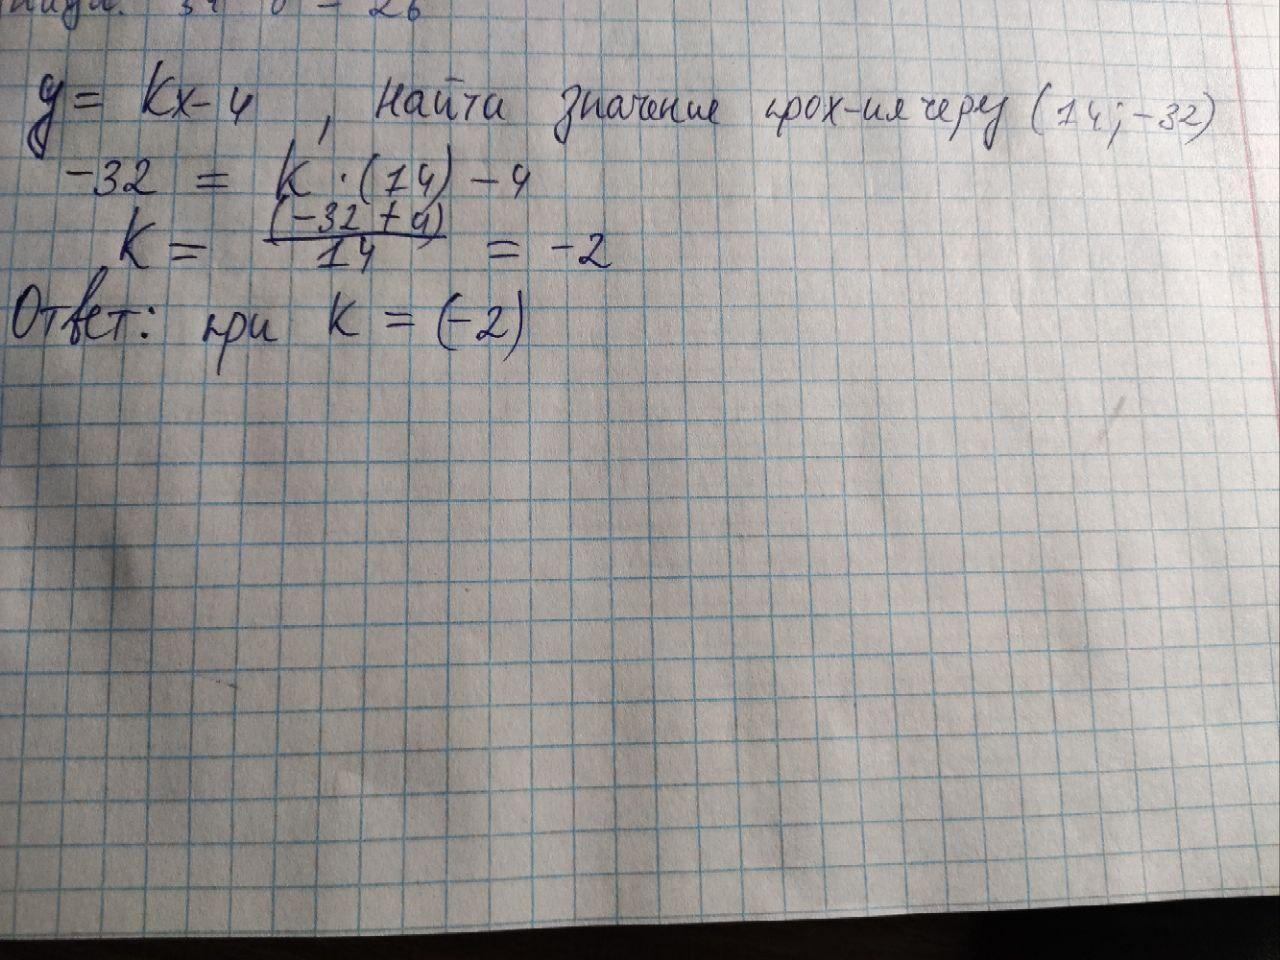 y = kx - 4 , найти значение прох-ия через (14; -32)
-32 = k · (14) - 4
k = (-32 + 4) / 14 = -2
Ответ: при k = (-2)